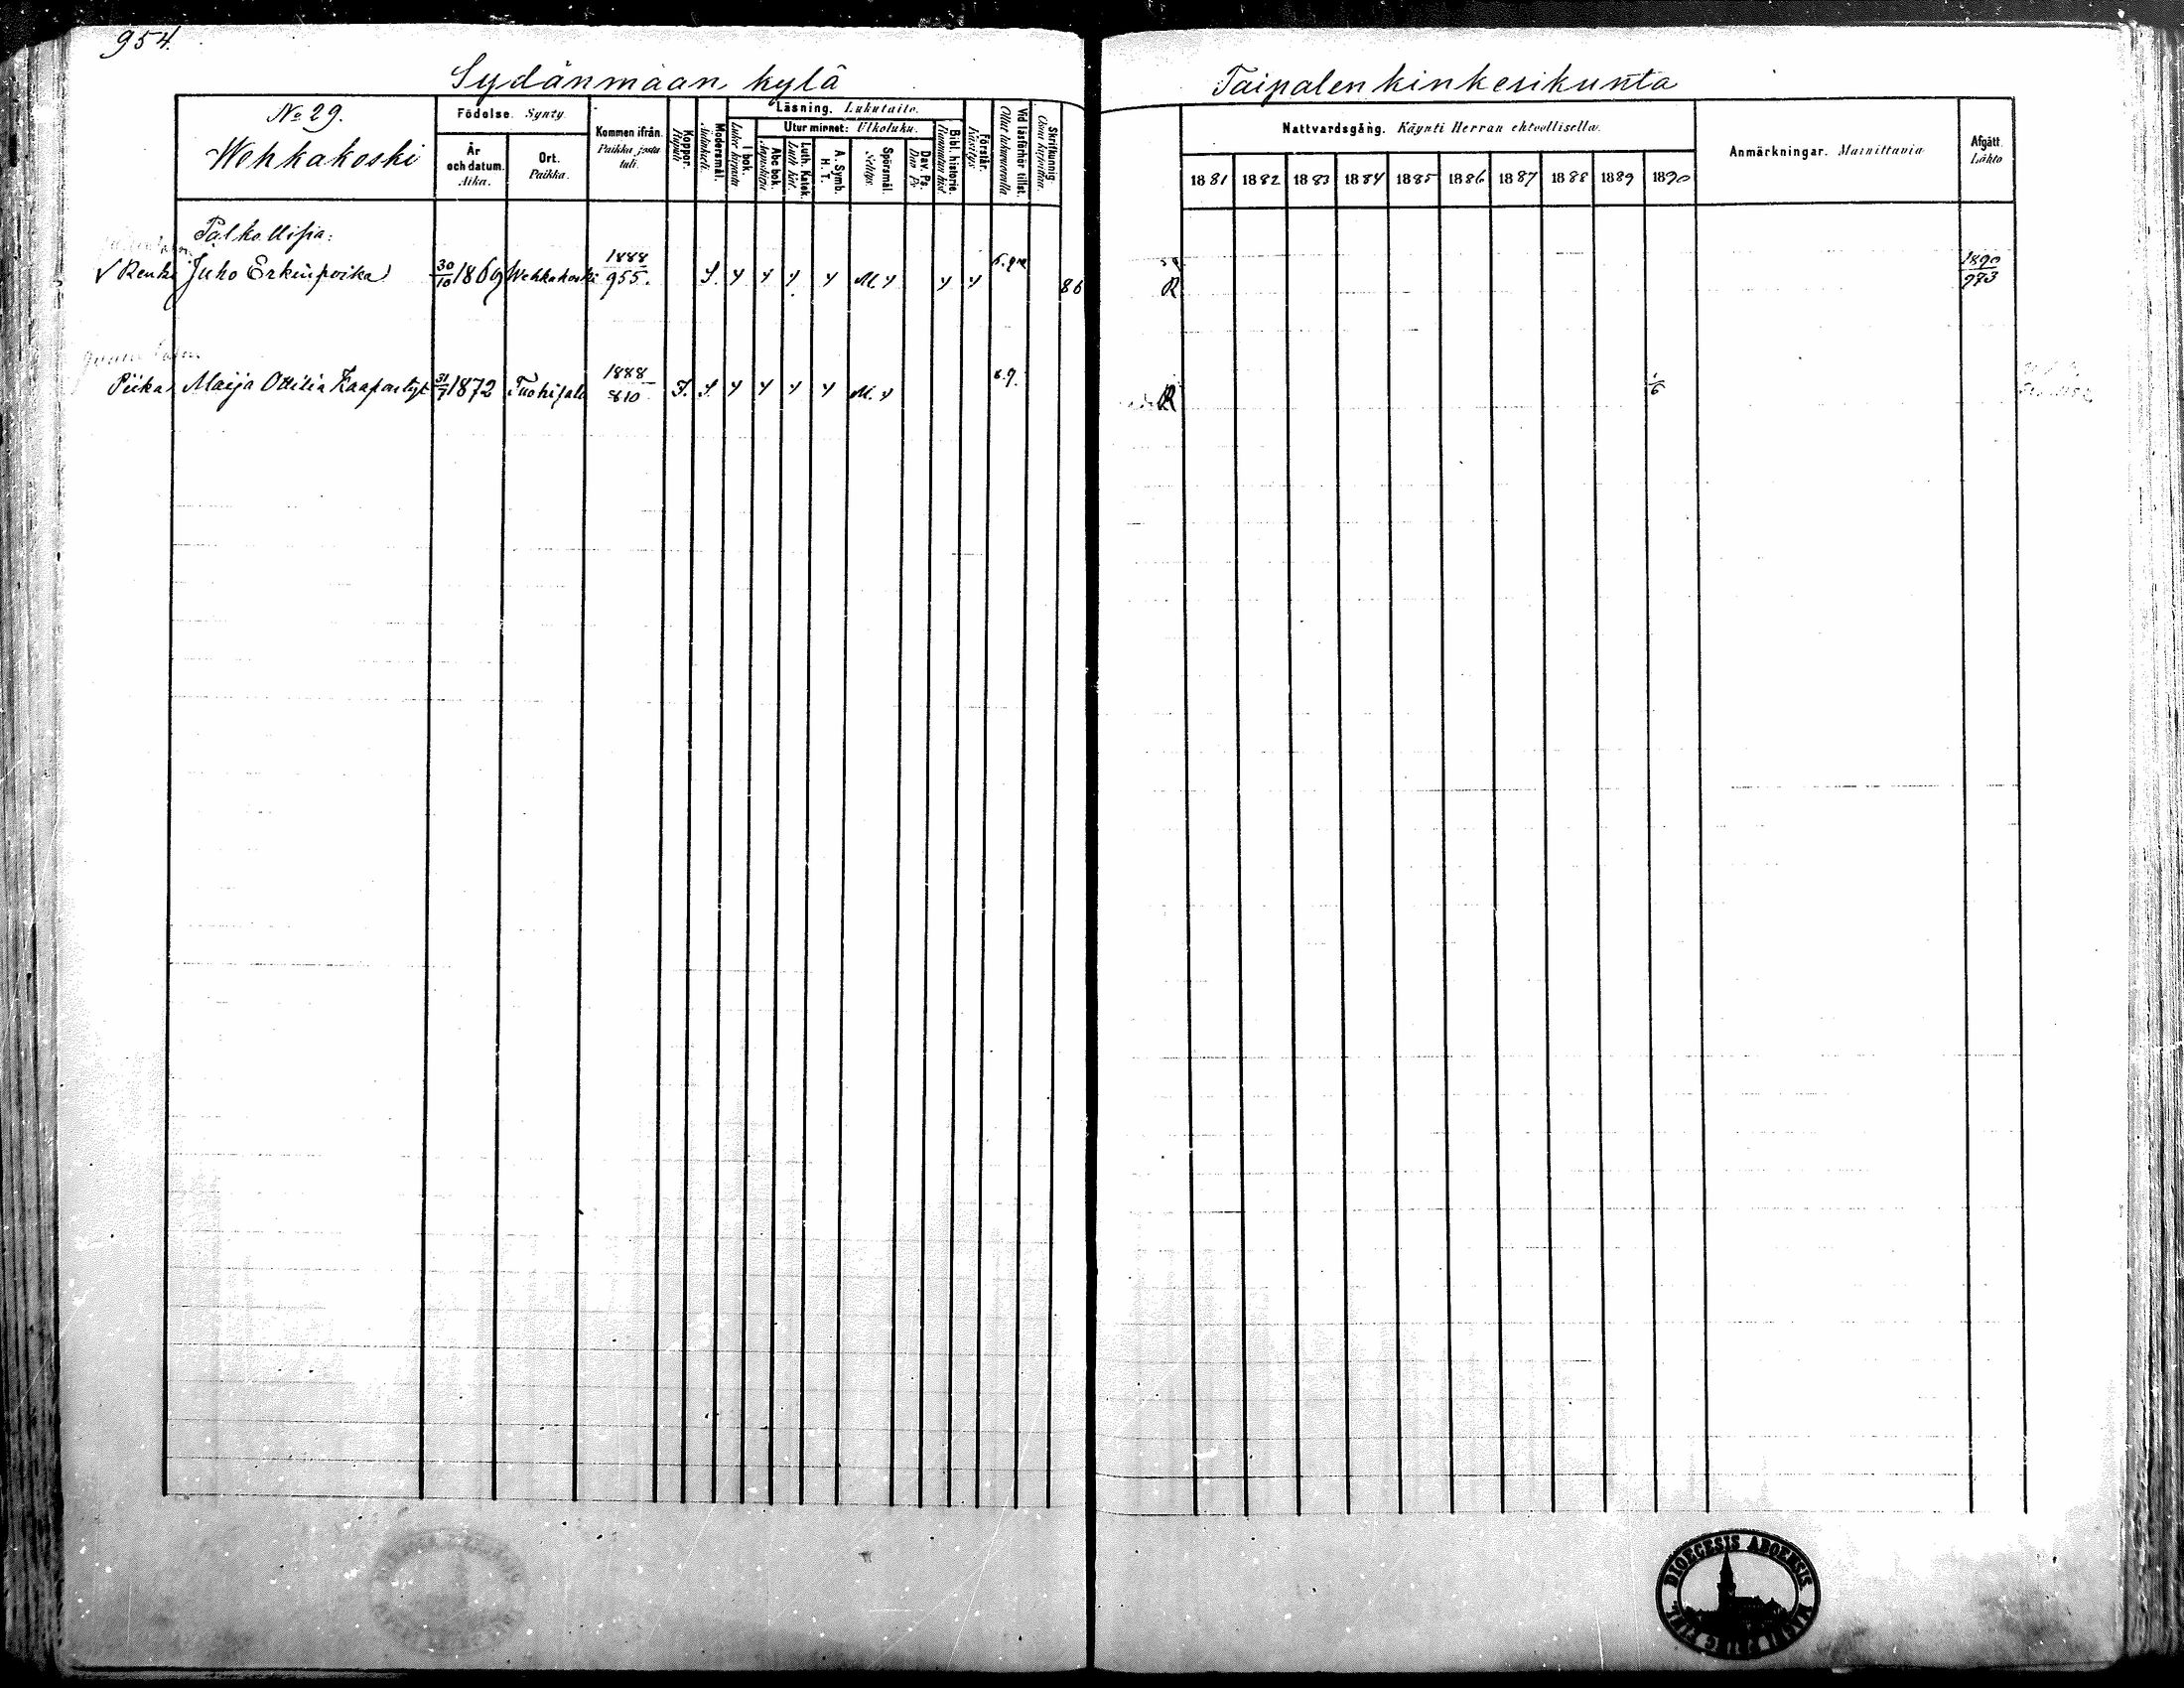 954.
Sydänmaan kylä
No 29.
Wehkakoski
Födelse. Synty.
År och datum. Aika.
Ort. Paikka.
Kommen ifrån. Paikka josta tuli.
Koppor. Rupuli
Modersmål.
Läsning. Lukutaito.
I bok. Lukee kirjasta
Utur minnet: Ulkoluku.
Abc bok. Aapiskirja
Luth. Katek. Luth. kat.
A. Symb. H. T.
Spörsmål. Selitys.
Dav. Ps. Dav. Ps
Bibl. historie.
Förstår. Käsitys.
Vid läsförhör tillst. Ollut lukuvuorolla
Skrifkunnig. Osaa kirjoittaa.
Palkollisia:
Renki Juho Erkinpoika 30/10 1869 Wehkakoski 1888/955. S. M. 86
Piika Maija Ottilia Kaapontyt 31/7 1872 1888/810 M.
Taipalen kinkerikunta
Nattvardsgång. Käynti Herran ehtoollisella.
1881 1882 1883 1884 1885 1886 1887 1888 1889 1890
Anmärkningar. Muistuttavia
Afgått. Lähtö
R 1890/973
R 1/6
DIOECESIS ABOENSIS